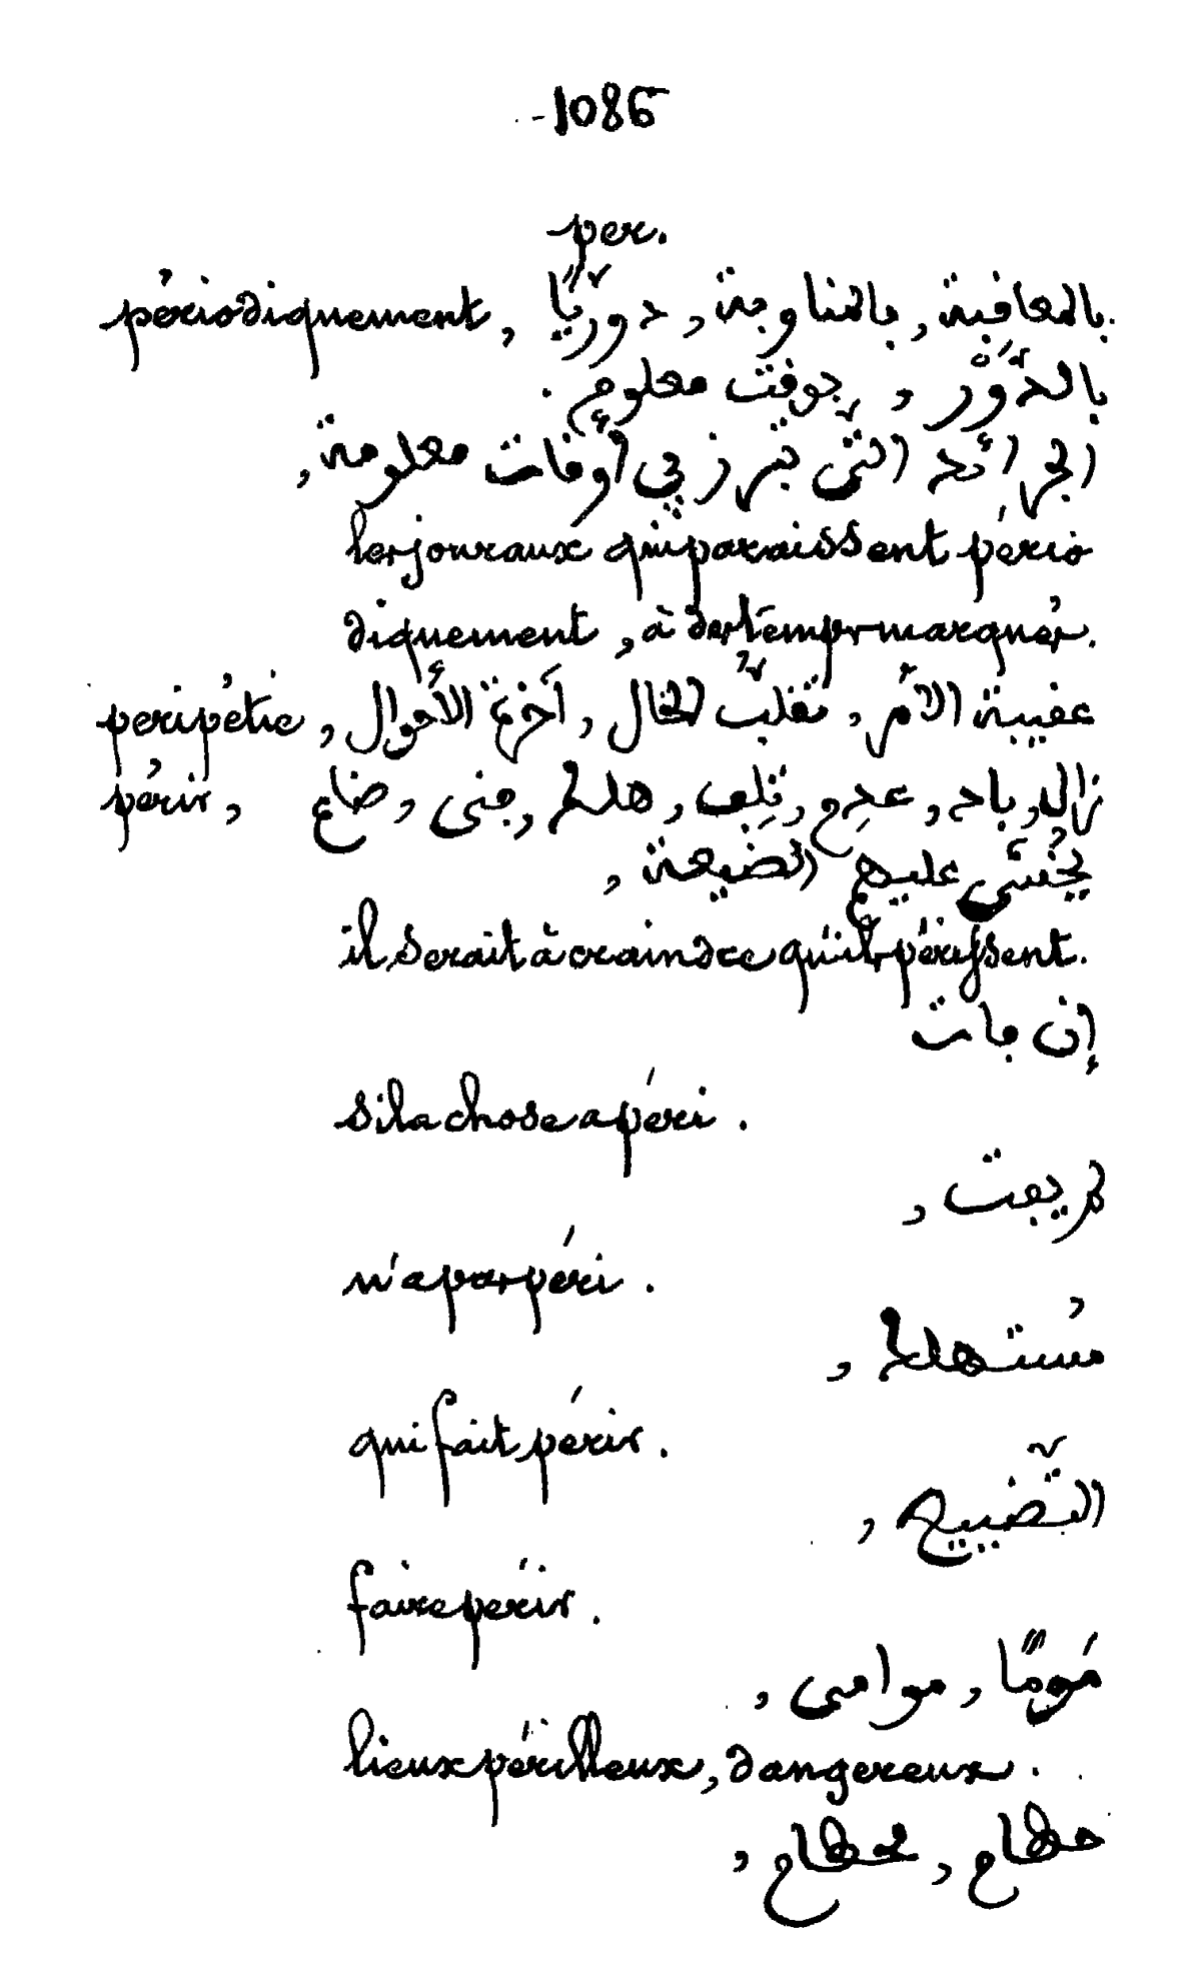 1086
per.
périodiquement, بالمعاقبة, بالمناوبة, دوريًّا
بالدَّوْر, بوقت معلوم.
الجرائد التي تبرز في أوقات معلومة,
les jouraux qui paraissent pério
diquement, à des temps marqués.
peripétie, عقيبة الامر, تقلّب الحال, آخرة الأحوال
périr, زال, باد, عدِم, تلِف, هلك, فنى, ضاع
يُخْشى عليهم الضيعة,
il serait à craindre qu'ils périssent.
إن فات
si la chose a péri.
لم يفت,
n'a pas péri.
مُستهلك,
qui fait périr.
التّضييع,
faire périr.
مَومًا, موامى,
lieux périlleux, dangereux.